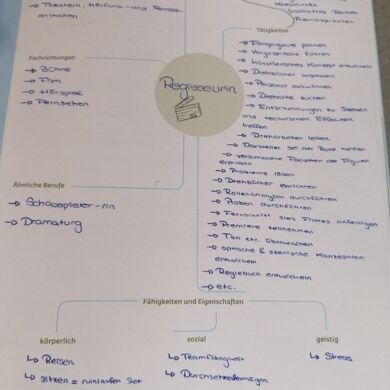 → Theatern, Hörfunk- und Fernseh-
anstalten
Fremdsprachen
Tätigkeiten
Fachrichtungen
→ Bühne
→ Film
→ Hörspiel
→ Fernsehen
Regisseurin
→ Filmprojekte planen
→ Vorgespräche führen
→ künstlerisches Konzept entwickeln
→ Drehbücher anpassen
→ Personal auswählen
→ Drehorte suchen
→ Entscheidungen zu Szenen
und technischen Effekten
treffen
→ Dreharbeiten leiten
→ Darsteller bei der Rolle helfen
→ verschiedene Facetten der Figuren
erproben
→ Probleme lösen
→ Drehbücher einrichten
→ Rollenanalysen durchführen
→ Proben durchführen
→ Feinschnitt des Filmes anfertigen
→ Premiere teilnehmen
→ Ton etc. überwachen
→ optische & szenische Konzeption
entwickeln
→ Regiebuch entwickeln
→ etc.
Ähnliche Berufe
→ Schauspieler-/in
→ Dramaturg
Fähigkeiten und Eigenschaften
körperlich
sozial
geistig
↳ Reisen
↳ sitzen = rumlaufen Set
↳ Teamfähigkeit
↳ Durchsetzvermögen
↳ Stress